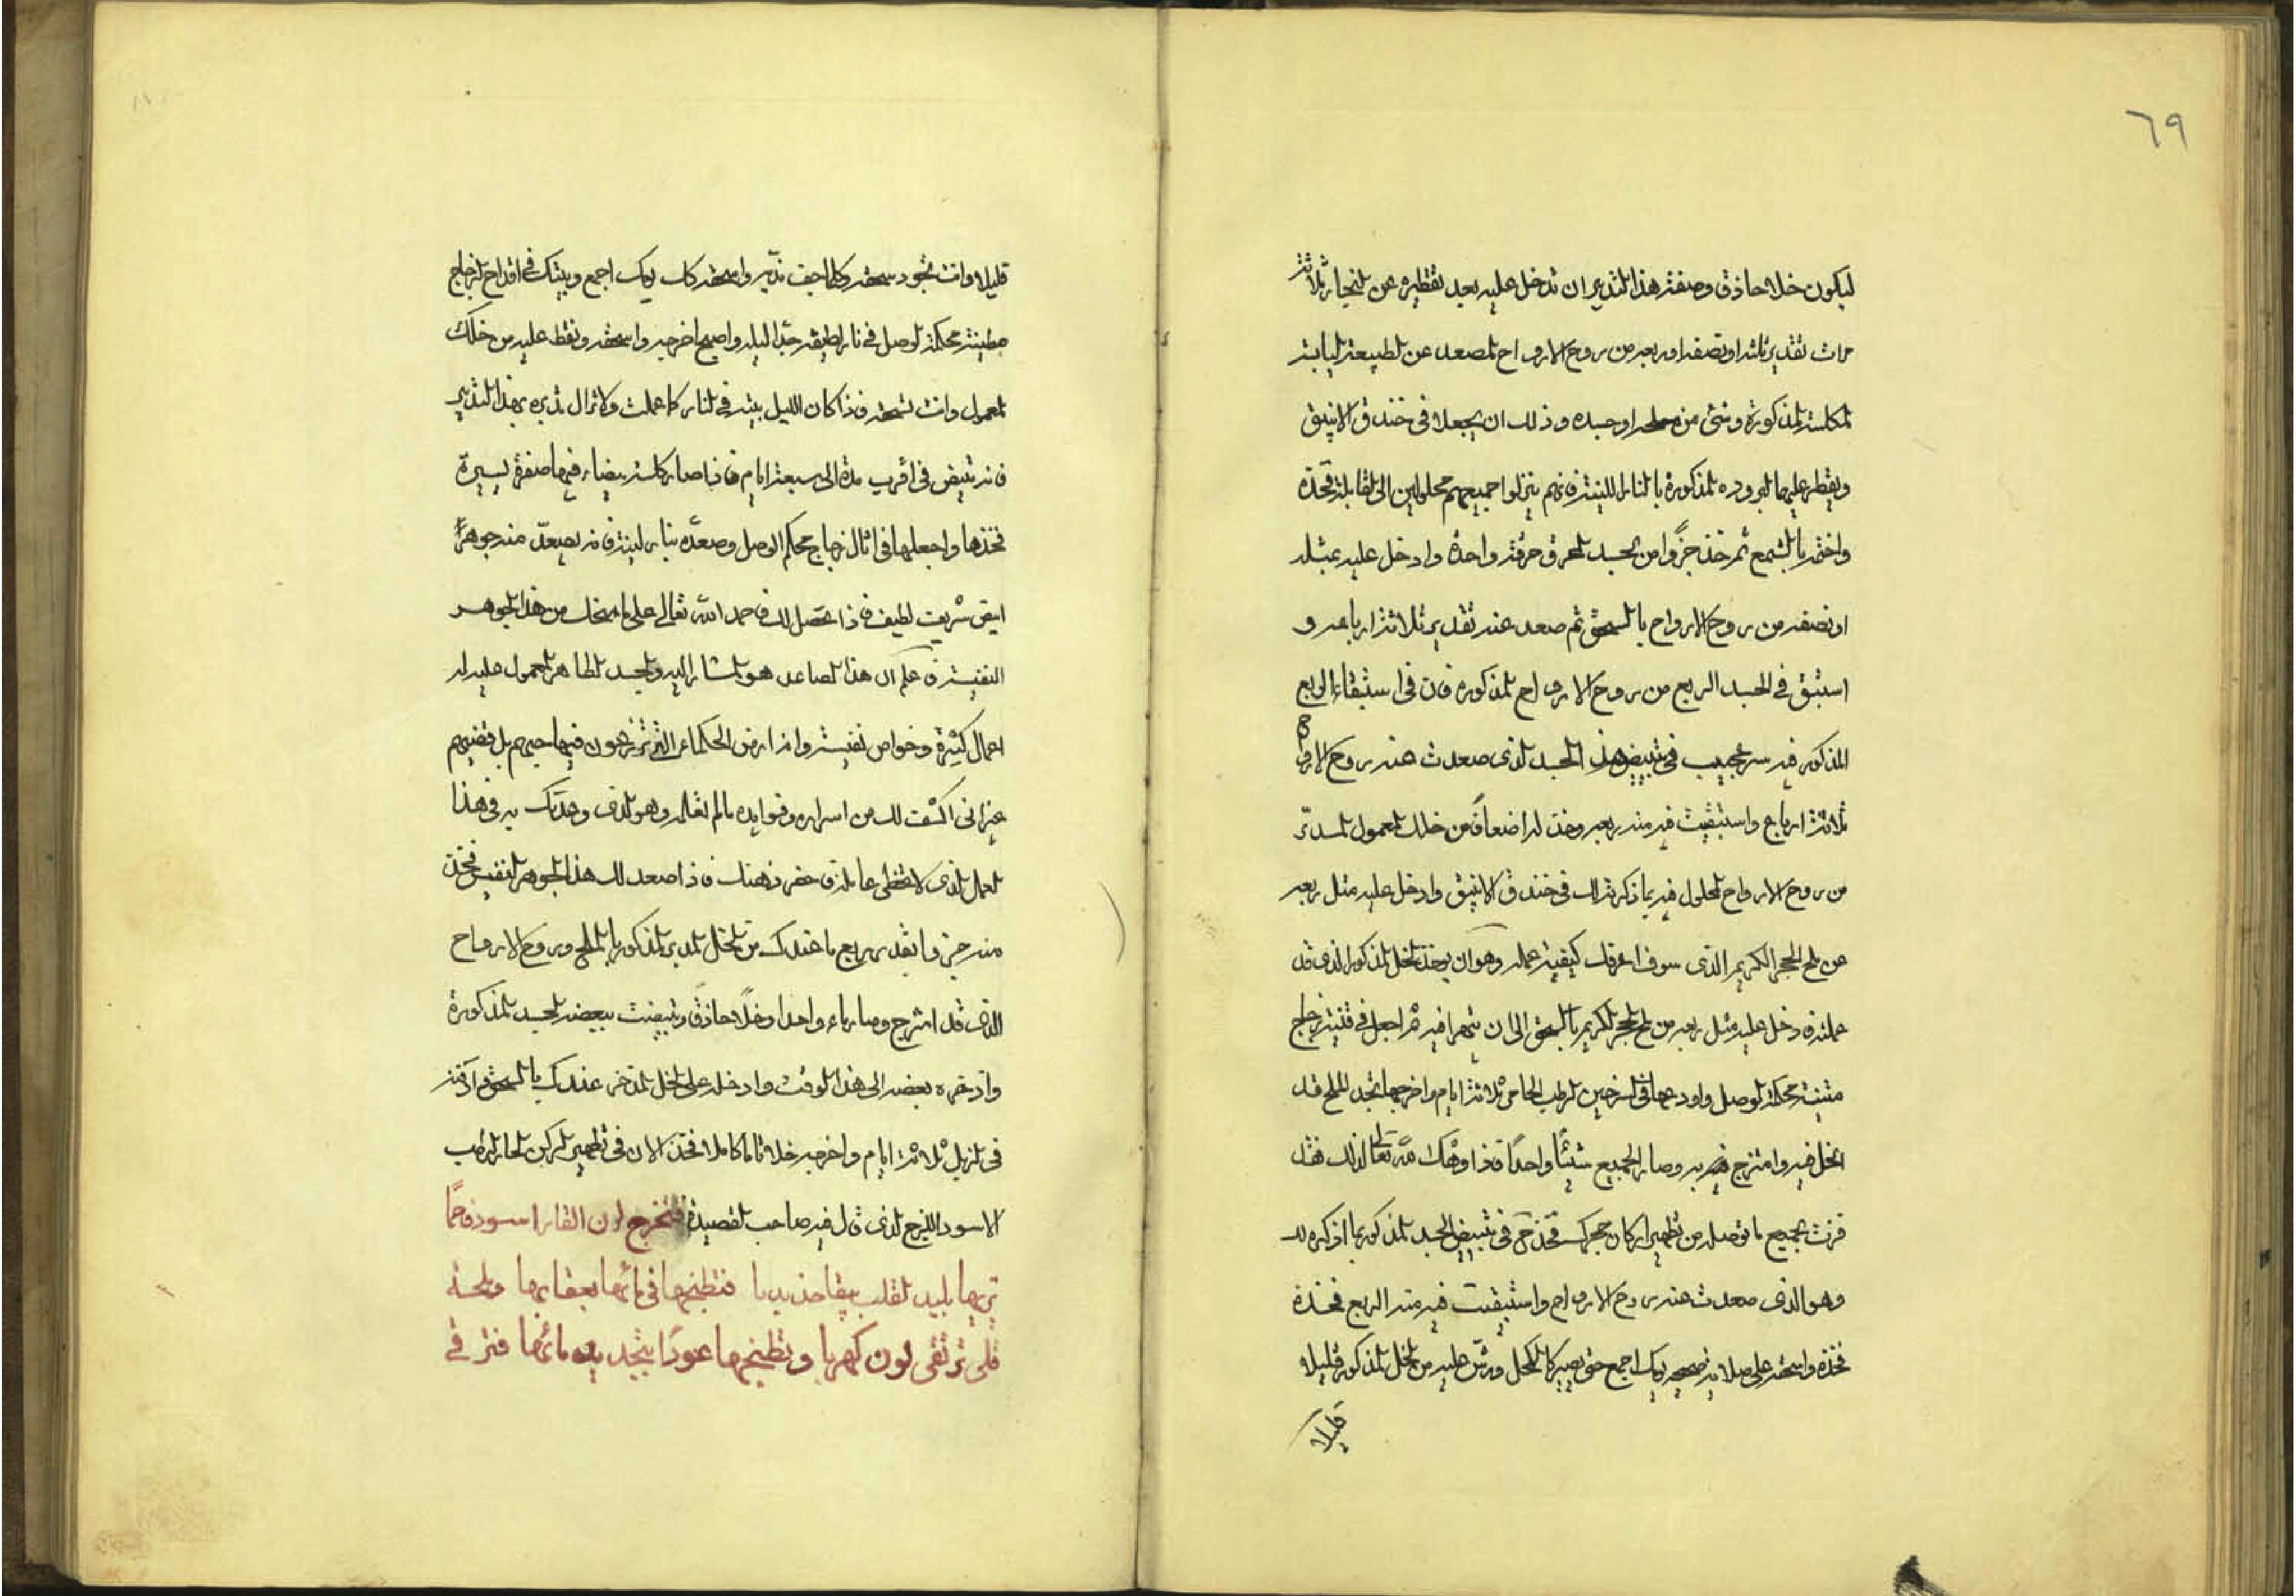 ٦٩
ليكون خلا حاذق وصفة هذا التدبير ان تدخل عليه بعد تقطيره عن ثلاثة
مرات تقدير ثلثه او نصفه او ربعه من روح الارواح المصعد عن الطبيعة اليابسة
المكلسة المذكورة وشئ من ملحه او جسده وذلك ان يجعلا في خندق الانبيق
ويقطر عليهما البروده المذكورة بالنار اللينة فانهم ينزلوا جميعهم محلولين الى القابلة فخذه
واختمه بالشمع ثم خذ جزوا من الجسد المحرق حرقة واحدة وادخل عليه بمثله
او نصفه من روح الارواح بالسحق ثم صعد عنه تقدير ثلاثة ارباعه و
استبق في الجسد الربع من روح الارواح المذكوره فان في استبقاء الربع
المذكور فيه سر عجيب في تبييض هذا الجسد الذى صعدت عنه روح الارواح
ثلاثة ارباع واستبقيت فيه منه ربعه وخذ له اضعاف من خلك المعمول المدبّر
من روح الارواح المحلول فيه بما ذكرته لك في خندق الانبيق وادخل عليه مثل ربعه
من ملح الحجر الكريم الذى سوف اعرفك كيفية عمله وهو ان يوخذ الخل المذكور الذى قد
عملته فادخل عليه مثل ربعه من ملح الحجر الكريم بالسحق الى ان يتهرا فيه ثم اجعل في قنينة زجاج
متينة محكمة الوصل واودعها في السرجين الرطب الحامى ثلاثة ايام واخرجها تجد الملح قد
انحل فيه وامتزج به وصار الجميع شيئًا واحدًا فاذا وفقك الله تعالى لذلك فقد
فزت بجميع ما توصله من تطهير اركان حجرك فخذ ح في تبييض الجسد المذكور بما اذكره لك
وهو الذى صعدت عنه روح الارواح واستبقيت فيه منه الربع فخذه
فخذه واسحقه على صلايه يومك اجمع حتى يصير كالكحل ورش عليه من الخل المذكور قليلا
قليلا
قليلا وانت تجود سحقه وكلما جف نديه واسحقه كل يومك اجمع وبيته في اقداح الزجاج
مطينة محكمة الوصل في نار لطيفه جدّا ليله واصبح اخرجه واسحقه ونقط عليه من خلك
المعمول وانت تسحقه فاذا كان الليل بيته في النار كما عملت ولا تزال تدبره بهذا التدبير
فانه تبيض في اقرب مدة الى سبعة ايام فاذا صار كلسه بيضاء فيها صفرة يسيرة
فخذها واجعلها في اثال زجاج محكم الوصل وصعدّه بنار لينة فانه يصعد منه جوهرًا
ابيض شريف لطيف فاذا تحصل لك فاحمد الله تعالى على ما منحك من هذا الجوهر
النفيس فاعلم ان هذا الصاعد هو المشار اليه والجسد الطاهر المعمول عليه له
اعمال كثيرة وخواص نفيسة وانه ارض الحكماء التى يزرعون فيها حبهم بل فضتهم
غير انى اكشف لك من اسراره وفوايده ما لم تعلمه وهو الذى وعدتك به في هذا
العمل الذى لا يخطى عامله فاحضر ذهنك فاذا صعد لك هذا الجوهر النفيس فخذ
منه جزوا بقدر ربع ما عندك من الخل المدبر المذكور بالملح وروح الارواح
الذى قد امتزج وصار ماء واحدا وخلًا حاذقًا وتبيضت ببعضه الجسد المذكورة
وادخره بعضه الى هذا الوقت وادخله على الخل المدخر عندك بالسحق وادفنه
في الزبل ثلاثة ايام واخرجه خلا تاما كاملا فخذ الان في تطهير الركن الحار الرطب
الاسود اللزج الذى قال فيه صاحب القصيدة فتخرج لون القار اسود فاحمًا
فتطبخها في مائها بعقارها
لون كهربا وتطبخها عودًا مائها